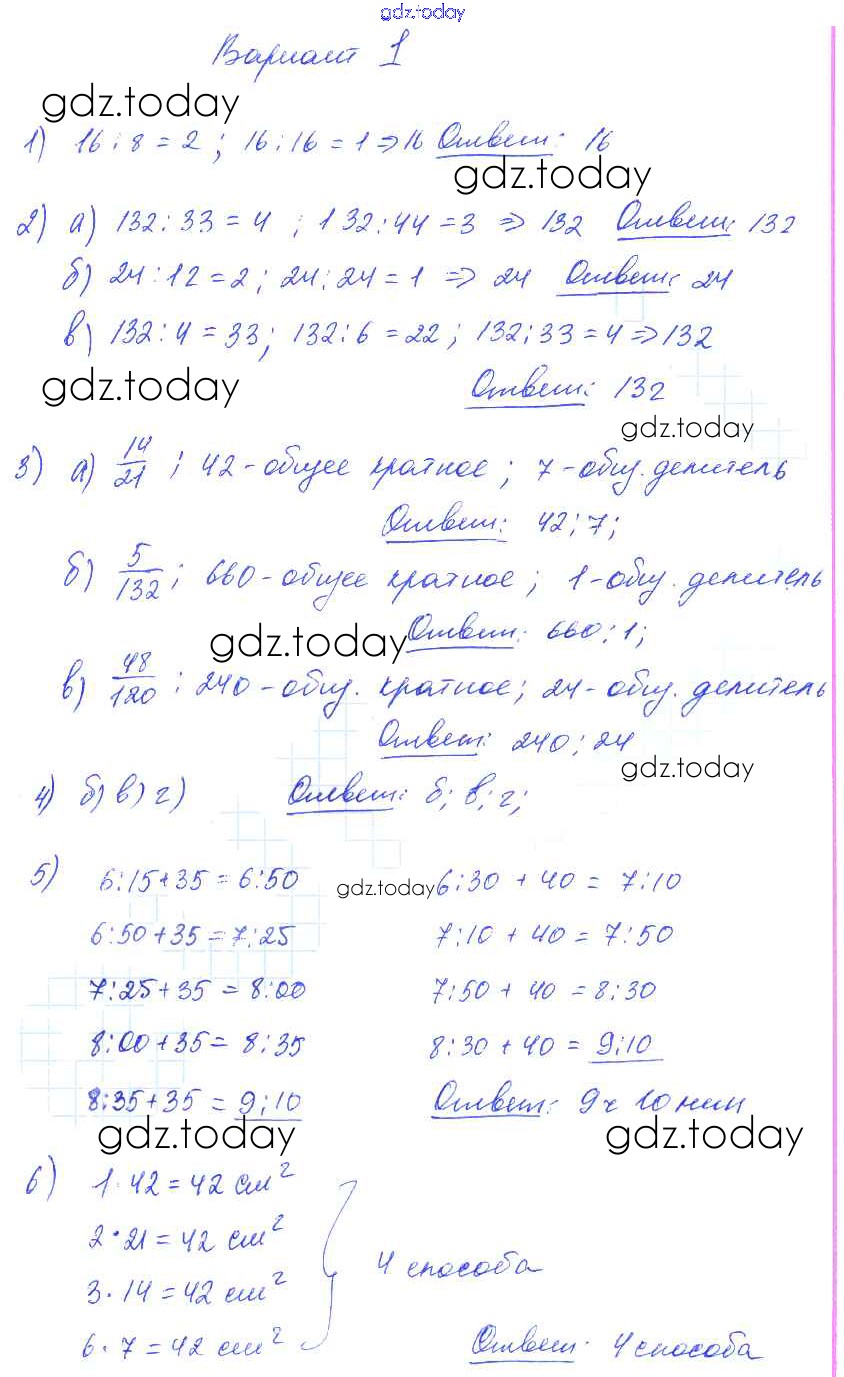 gdz.today
Вариант 1
gdz.today
1) 16:8=2; 16:16=1⇒16 Ответ: 16
gdz.today
2) а) 132:33=4; 132:44=3 ⇒ 132 Ответ: 132
б) 24:12=2; 24:24=1 ⇒ 24 Ответ: 24
в) 132:4=33; 132:6=22; 132:33=4⇒132
gdz.today Ответ: 132
gdz.today
3) а) 14/21; 42-общее кратное; 7-общ. делитель
Ответ: 42; 7;
б) 5/132; 660-общее кратное; 1-общ. делитель
gdz.today Ответ: 660; 1;
в) 48/120; 240-общ. кратное; 24-общ. делитель
Ответ: 240; 24
gdz.today
4) б) в) г) Ответ: б; в; г;
5) 6:15+35=6:50 gdz.today 6:30+40=7:10
6:50+35=7:25 7:10+40=7:50
7:25+35=8:00 7:50+40=8:30
8:00+35=8:35 8:30+40=9:10
8:35+35=9:10 Ответ: 9ч 10мин
gdz.today gdz.today
6) 1·42=42 см²
2·21=42 см²
4 способа
3·14=42 см²
6·7=42 см² Ответ: 4 способа